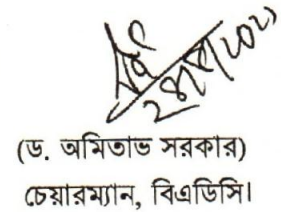 (ড. অমিতাভ সরকার)
চেয়ারম্যান, বিএডিসি।